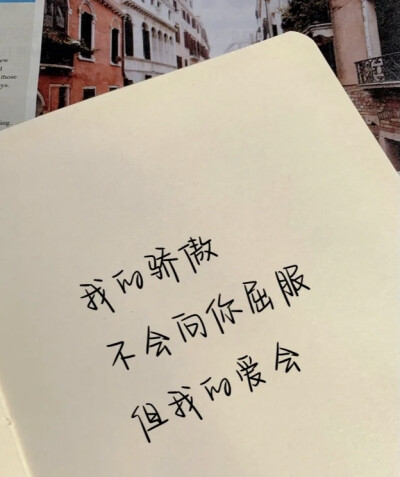 我的骄傲
不会向你屈服
但我的爱会